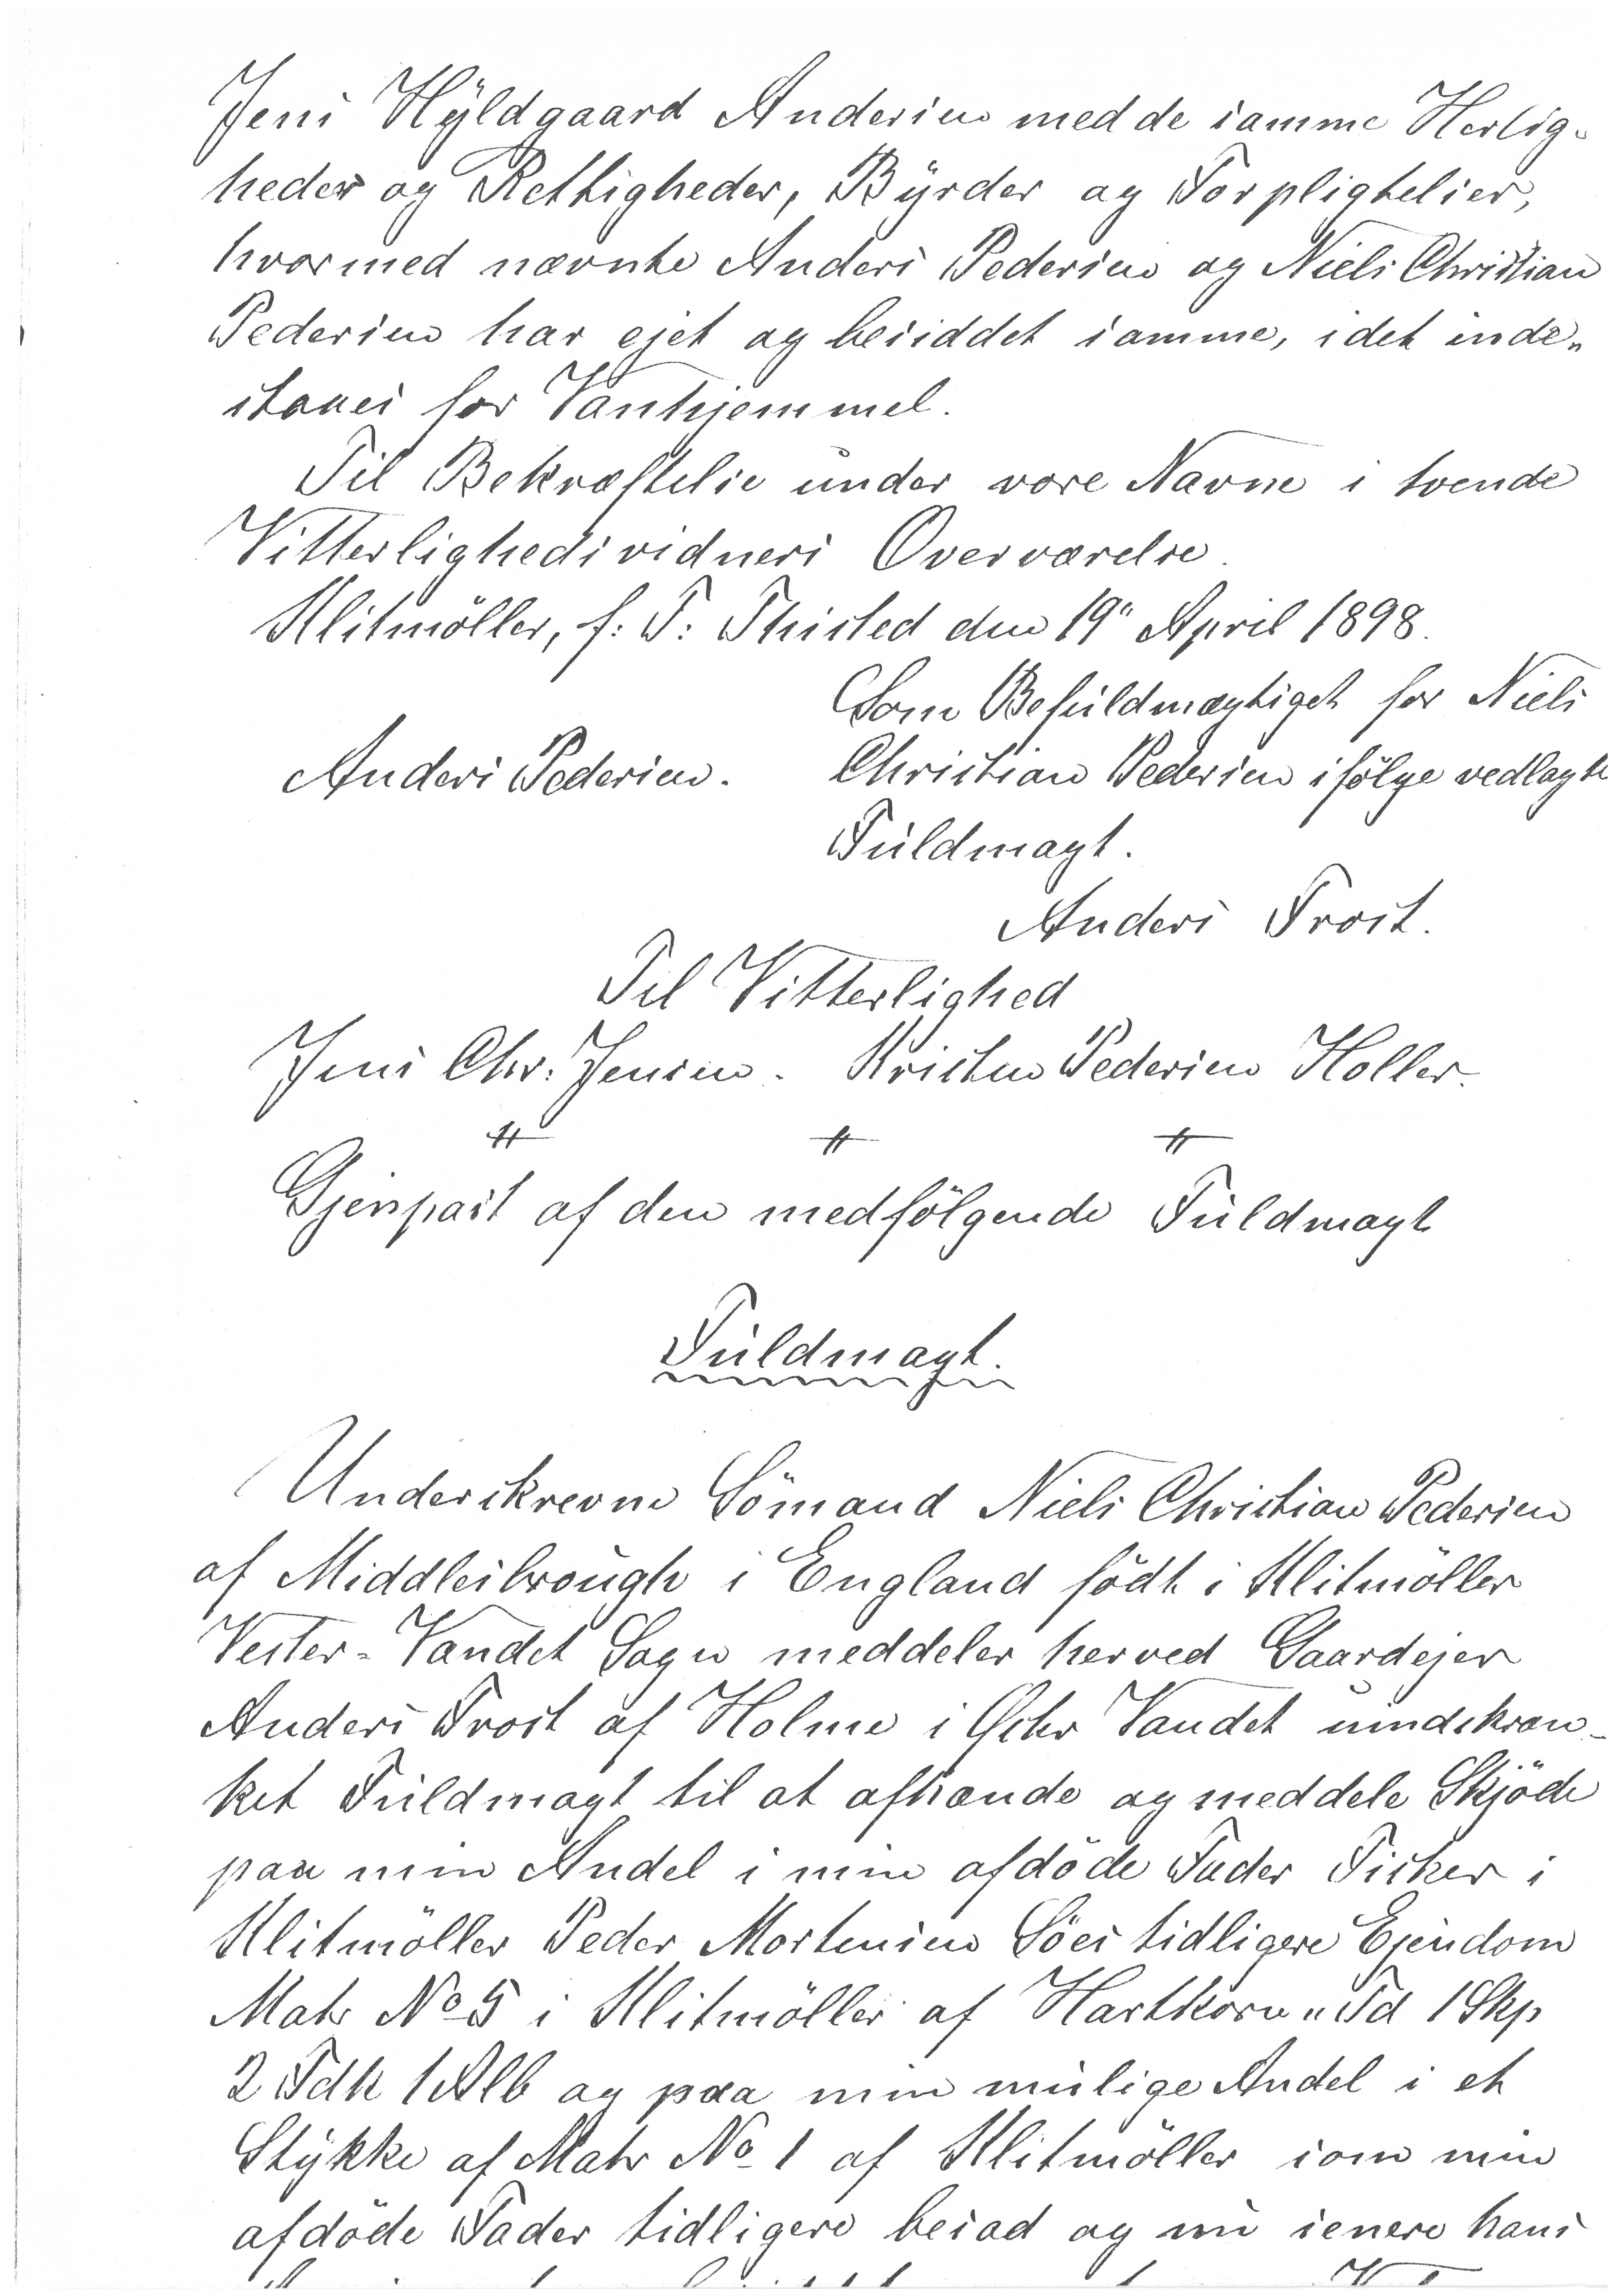 Jens Hyldgaard Andersen med de samme Herlig-
heder og Rettigheder, Byrder og Forpligtelser,
hvormed nævnte Anders Pedersen og Niels Christian
Pedersen har ejet og besiddet samme, idet inde-
staaes for Vanhjemmel.
Til Bekræftelse under vore Navne i tvende
Vitterlighedsvidners Overværelse.
Klitmöller, f: T: Thisted den 19" April 1898.
Som Befuldmægtiget for Niels
Anders Pedersen. Christian Pedersen ifölge vedlagte
Fuldmagt.
Anders Frost.
Til Vitterlighed
Jens Chr: Jensen. Kristen Pedersen Holler.
Gjenpart af den medfölgende Fuldmagt
Fuldmagt.
Underskrevne Sömand Niels Christian Pedersen
af Middlesbrough i England födt i Klitmöller
Vester-Vandet Sogn meddeler herved Gaardejer
Anders Frost af Holme i Öster Vandet uindskræn-
ket Fuldmagt til at afhænde og meddele Skjöde
paa min Andel i min afdöde Fader Fisker i
Klitmöller Peder Mortensen Söes tidligere Ejendom
Matr No 5 i Klitmöller af Hartkorn " Td 1 Skp
2 Fdk 1 Alb og paa min mulige Andel i et
Stykke af Matr No 1 af Klitmöller som min
afdöde Fader tidligere besad og nu senere hans